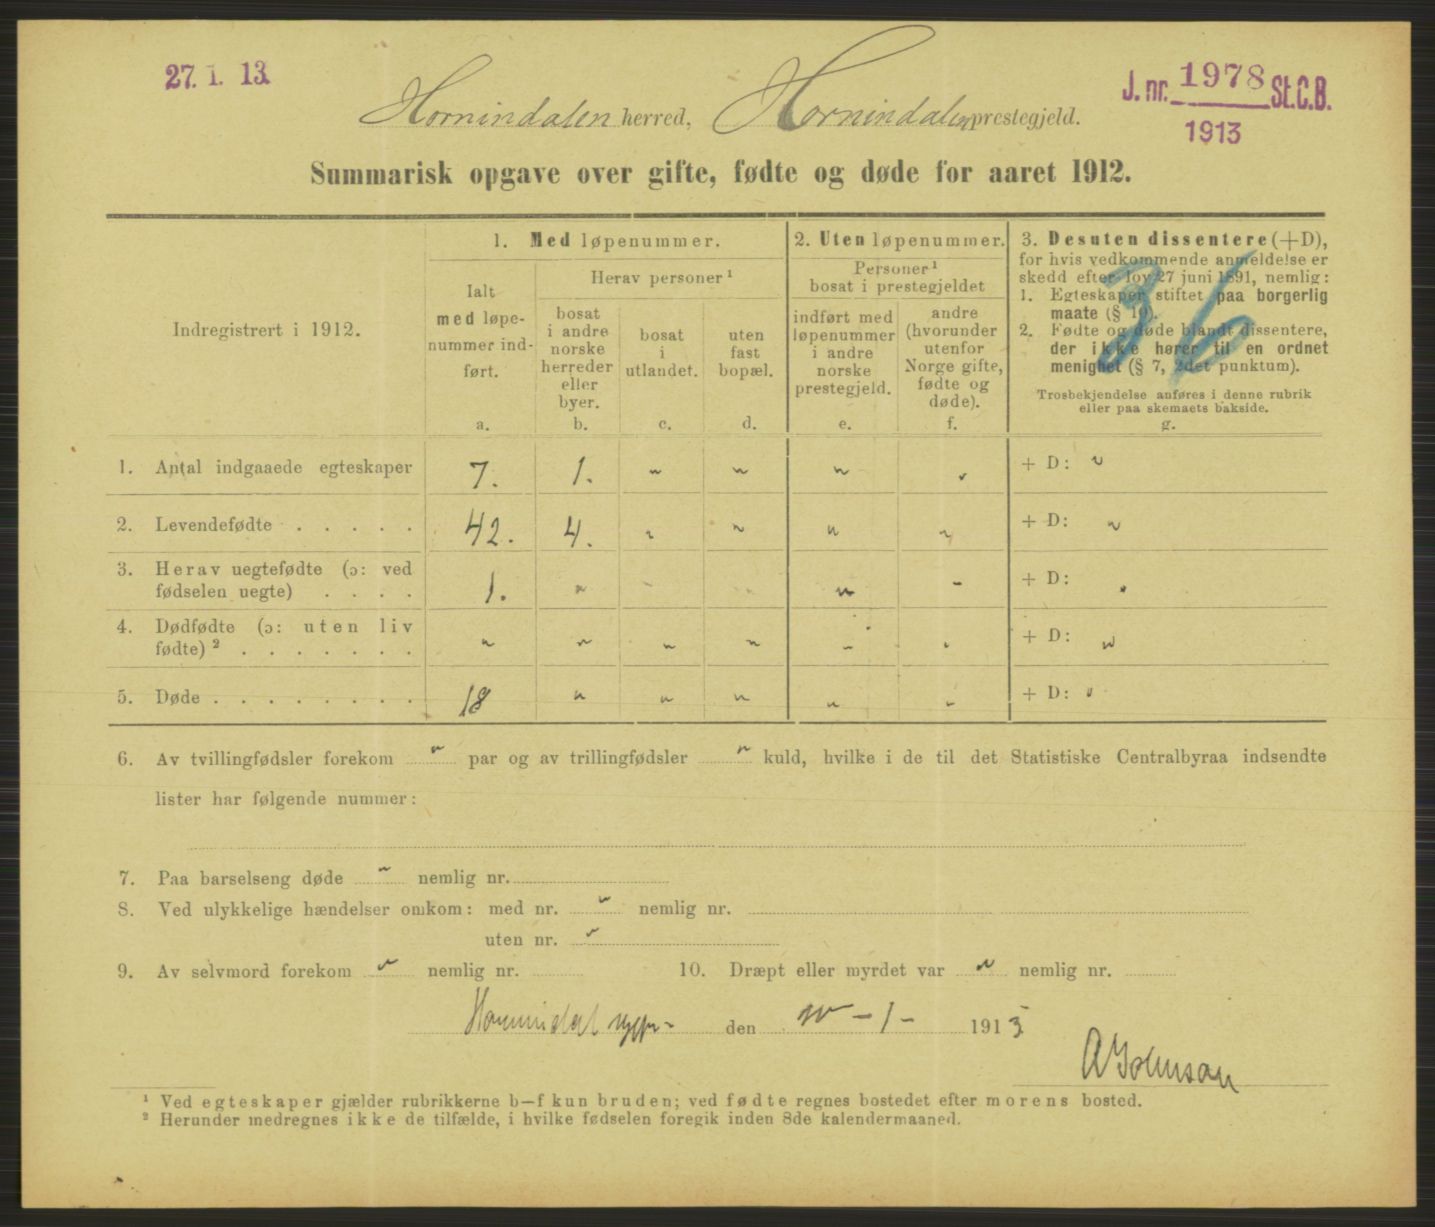 27. 1. 13.
J. nr. 1978 St.C.B.
1913
Hornindalen herred, Hornindalen prestegjeld.
Summarisk opgave over gifte, fødte og døde for aaret 1912.
Indregistrert i 1912.
1. Med løpenummer.
Ialt
med løpe-
nummer ind-
ført.
a.
Herav personer ¹
bosat
i andre
norske
herreder
eller
byer.
b.
bosat
i
utlandet.
c.
uten
fast
bopæl.
d.
2. Uten løpenummer.
Personer ¹
bosat i prestegjeldet
indført med
løpenummer
i andre
norske
prestegjeld.
e.
andre
(hvorunder
utenfor
Norge gifte,
fødte og
døde).
f.
3. Desuten dissentere (+D),
for hvis vedkommende anmeldelse er
skedd efter lov 27 juni 1891, nemlig:
1. Egteskaper stiftet paa borgerlig
maate (§ 10).
2. Fødte og døde blandt dissentere,
der ikke hører til en ordnet
menighet (§ 7, 2det punktum).
Trosbekjendelse anføres i denne rubrik
eller paa skemaets bakside.
g.
36
1. Antal indgaaede egteskaper 7. 1. " " " " + D: "
2. Levendefødte . . . . . 42. 4. " " " " + D: "
3. Herav uegtefødte (ɔ: ved
fødselen uegte) . . . . 1. " " " " " + D: "
4. Dødfødte (ɔ: uten liv
fødte) ² . . . . . . . " " " " " " + D: "
5. Døde . . . . . . . . 18 " " " " " + D: "
6. Av tvillingfødsler forekom " par og av trillingfødsler " kuld, hvilke i de til det Statistiske Centralbyraa indsendte
lister har følgende nummer:
7. Paa barselseng døde " nemlig nr.
8. Ved ulykkelige hændelser omkom: med nr. " nemlig nr.
uten nr. "
9. Av selvmord forekom " nemlig nr. 10. Dræpt eller myrdet var " nemlig nr.
Hornindal den -1- 1913
¹ Ved egteskaper gjælder rubrikkerne b—f kun bruden; ved fødte regnes bostedet efter morens bosted.
² Herunder medregnes ikke de tilfælde, i hvilke fødselen foregik inden 8de kalendermaaned.